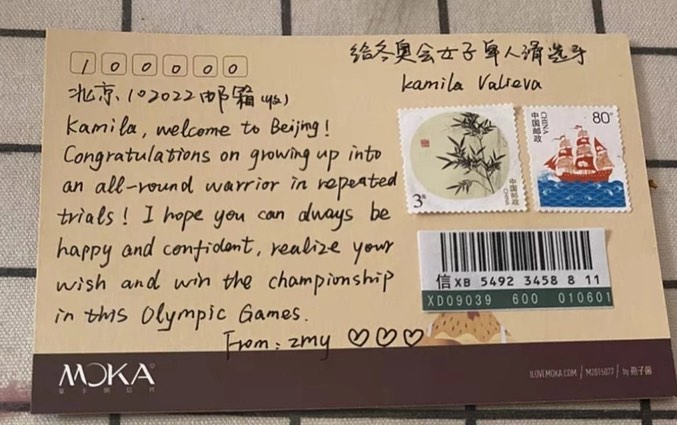 100000
给冬奥会女子单人滑选手
Kamila Valieva
北京、102022邮箱(收)
Kamila, welcome to Beijing!
Congratulations on growing up into
an all-round warrior in repeated
trials! I hope you can always be
happy and confident, realize your
wish and win the championship
in this Olympic Games.
From: zmy ♡♡♡
3元
中国邮政
CHINA
80分
中国邮政
CHINA
信 XB 5492 3458 8 11
XD09039 600 010601
MOKA
ILOVEMOKA.COM / MZBTS077 / by 孢子菌